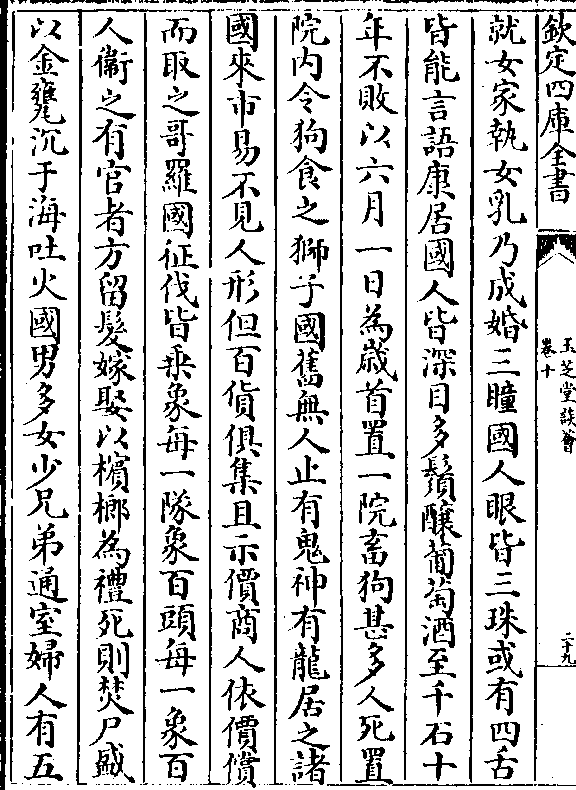 欽定四庫全書
玉芝堂談薈
卷十
二十九
就女家執女乳乃成婚三瞳國人眼皆三珠或有四舌
皆能言語康居國人皆深目多鬚釀葡萄酒至千石十
年不敗以六月一日為歲首置一院畜狗甚多人死置
院内令狗食之獅子國舊無人止有鬼神有龍居之諸
國來市易不見人形但百貨俱集且示價商人依價償
而取之哥羅國征伐皆乗象每一隊象百頭每一象百
人衛之有官者方留髮嫁娶以檳榔為禮死則焚尸盛
以金甕沉于海吐火國男多女少兄弟通室婦人有五